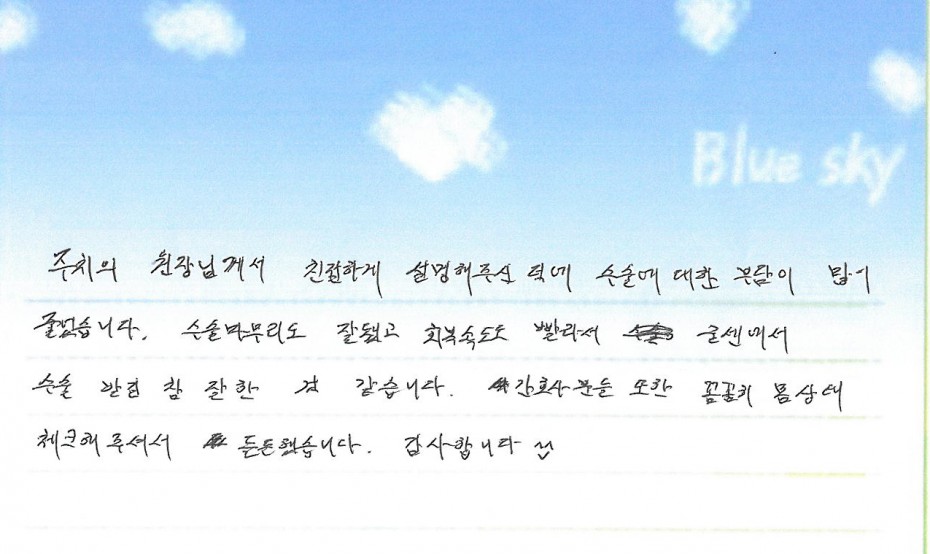 Blue sky
주치의 원장님께서 친절하게 설명해주신 덕에 수술에 대한 부담이 많이
줄었습니다. 수술마무리도 잘됐고 회복속도도 빨라서 굿센에서
수술 받길 참 잘한 것 같습니다. 간호사분들 또한 꼼꼼히 몸상태
체크해주셔서 든든했습니다. 감사합니다